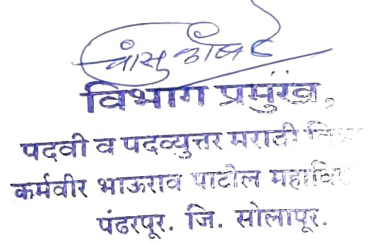 विभाग प्रमुख,
पदवी व पदव्युत्तर मराठी
कर्मवीर भाऊराव पाटील
पंढरपूर. जि. सोलापूर.